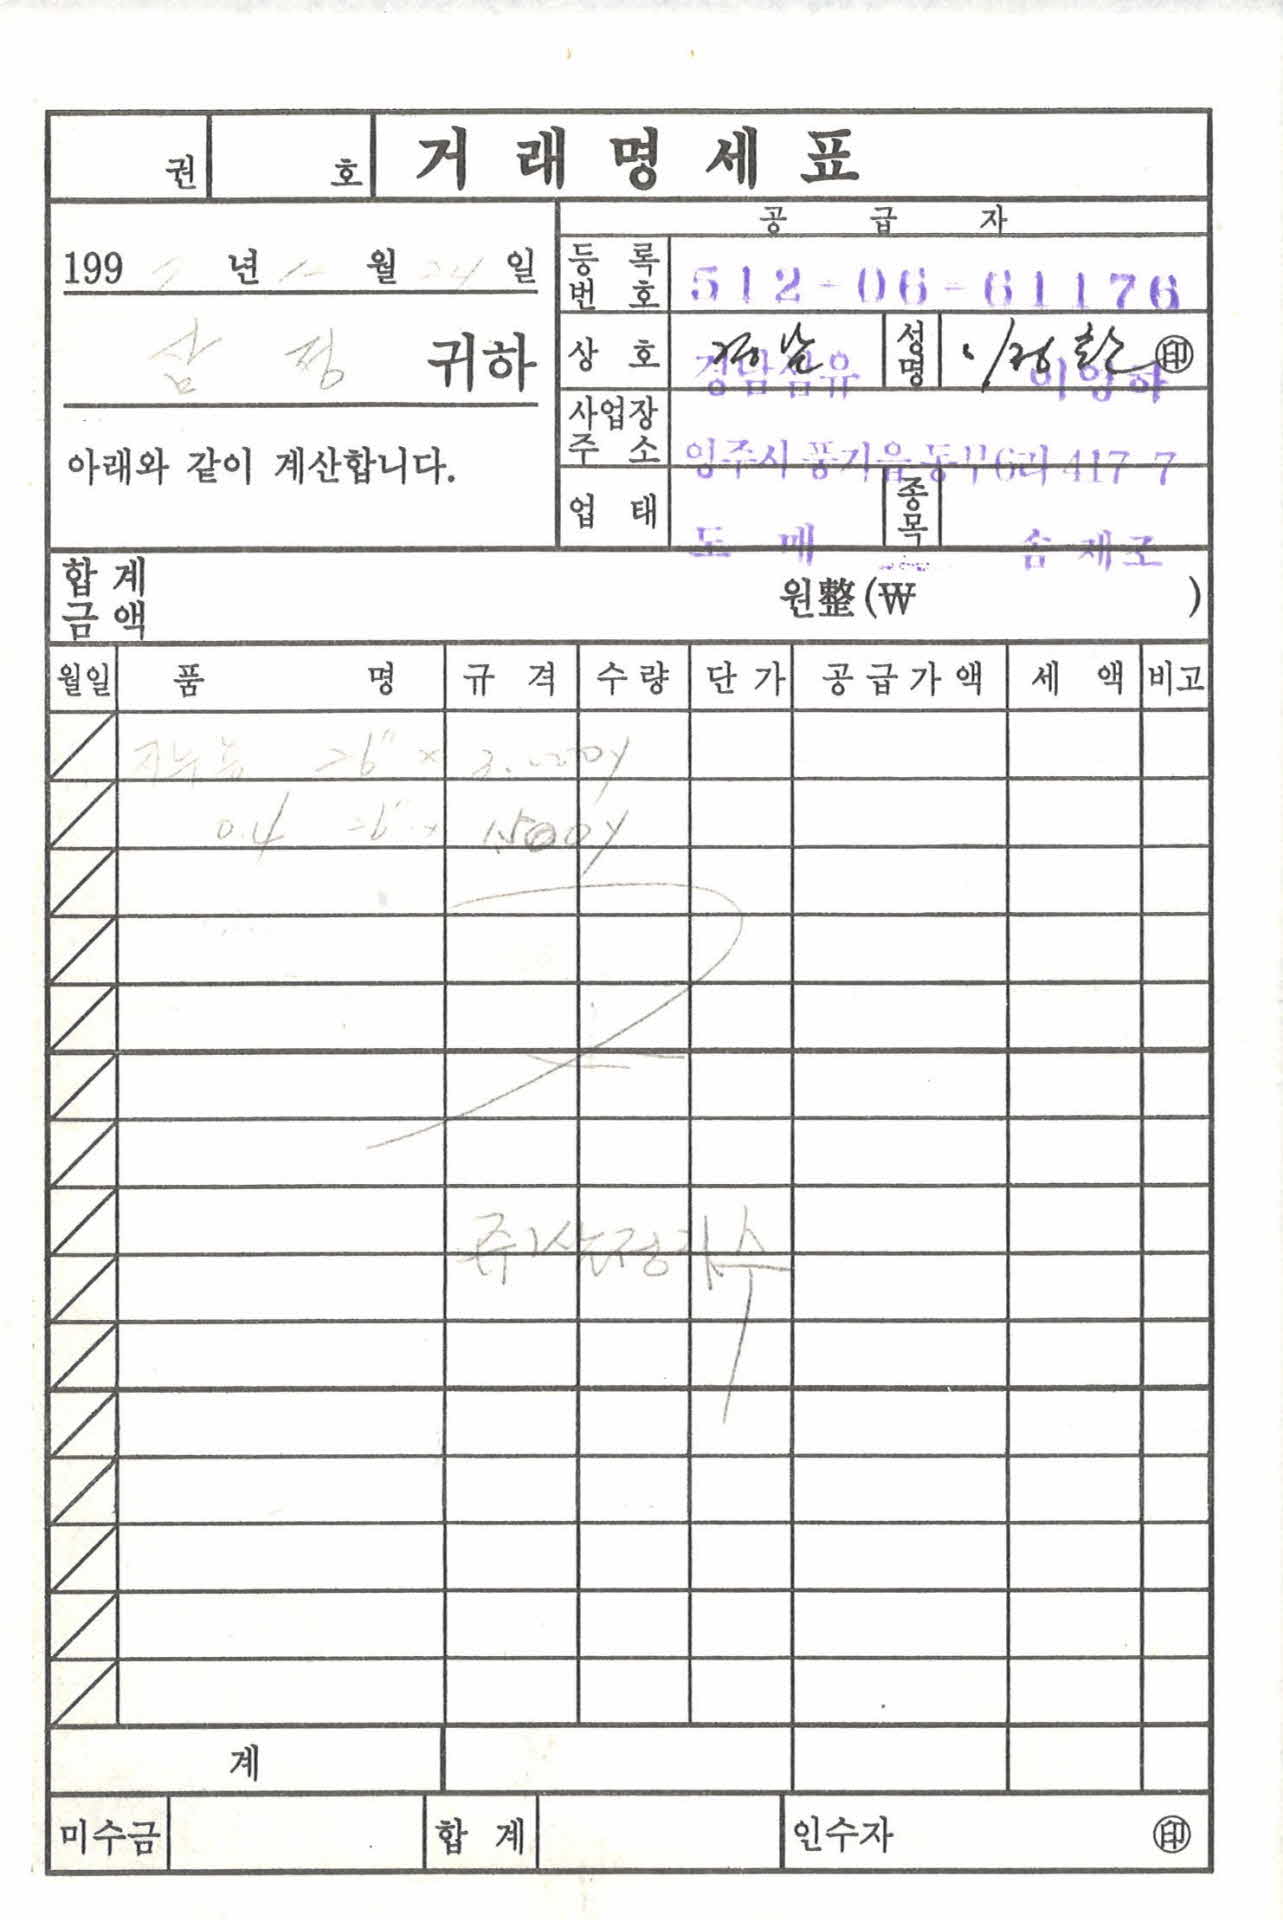 권 호 거래명세표
공급자
199 년 월 24 일
등록번호 512-06-61176
삼정 귀하
상호 경남섬유 성명 印
사업장주소 영주시 풍기읍 동부6리 417-7
아래와 같이 계산합니다.
업태 도매 종목
합계금액 원整(₩ )
월일 품명 규격 수량 단가 공급가액 세액 비고
26" × 3.000y
0.4 26" × 1,500y
계
미수금 합계 인수자 印